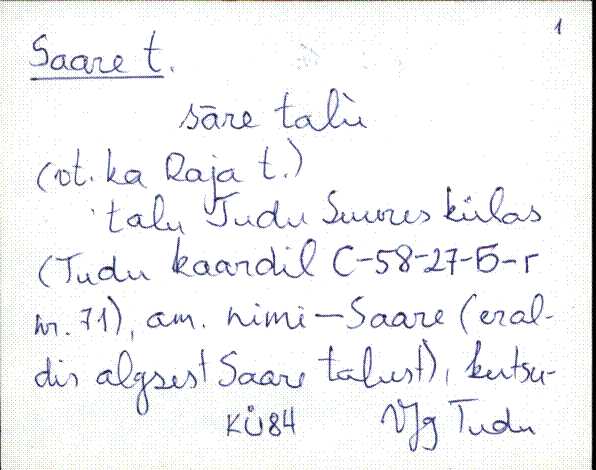 1
Saare t.
sāre talù
(vt. ka Raja t.)
talu Tudu Suures külas
(Tudu kaardil C-58-27-Б-г
nr. 71), am. nimi - Saare (eral-
dis algsest Saare talust), kutsu-
KÜ84 VJg Tudu